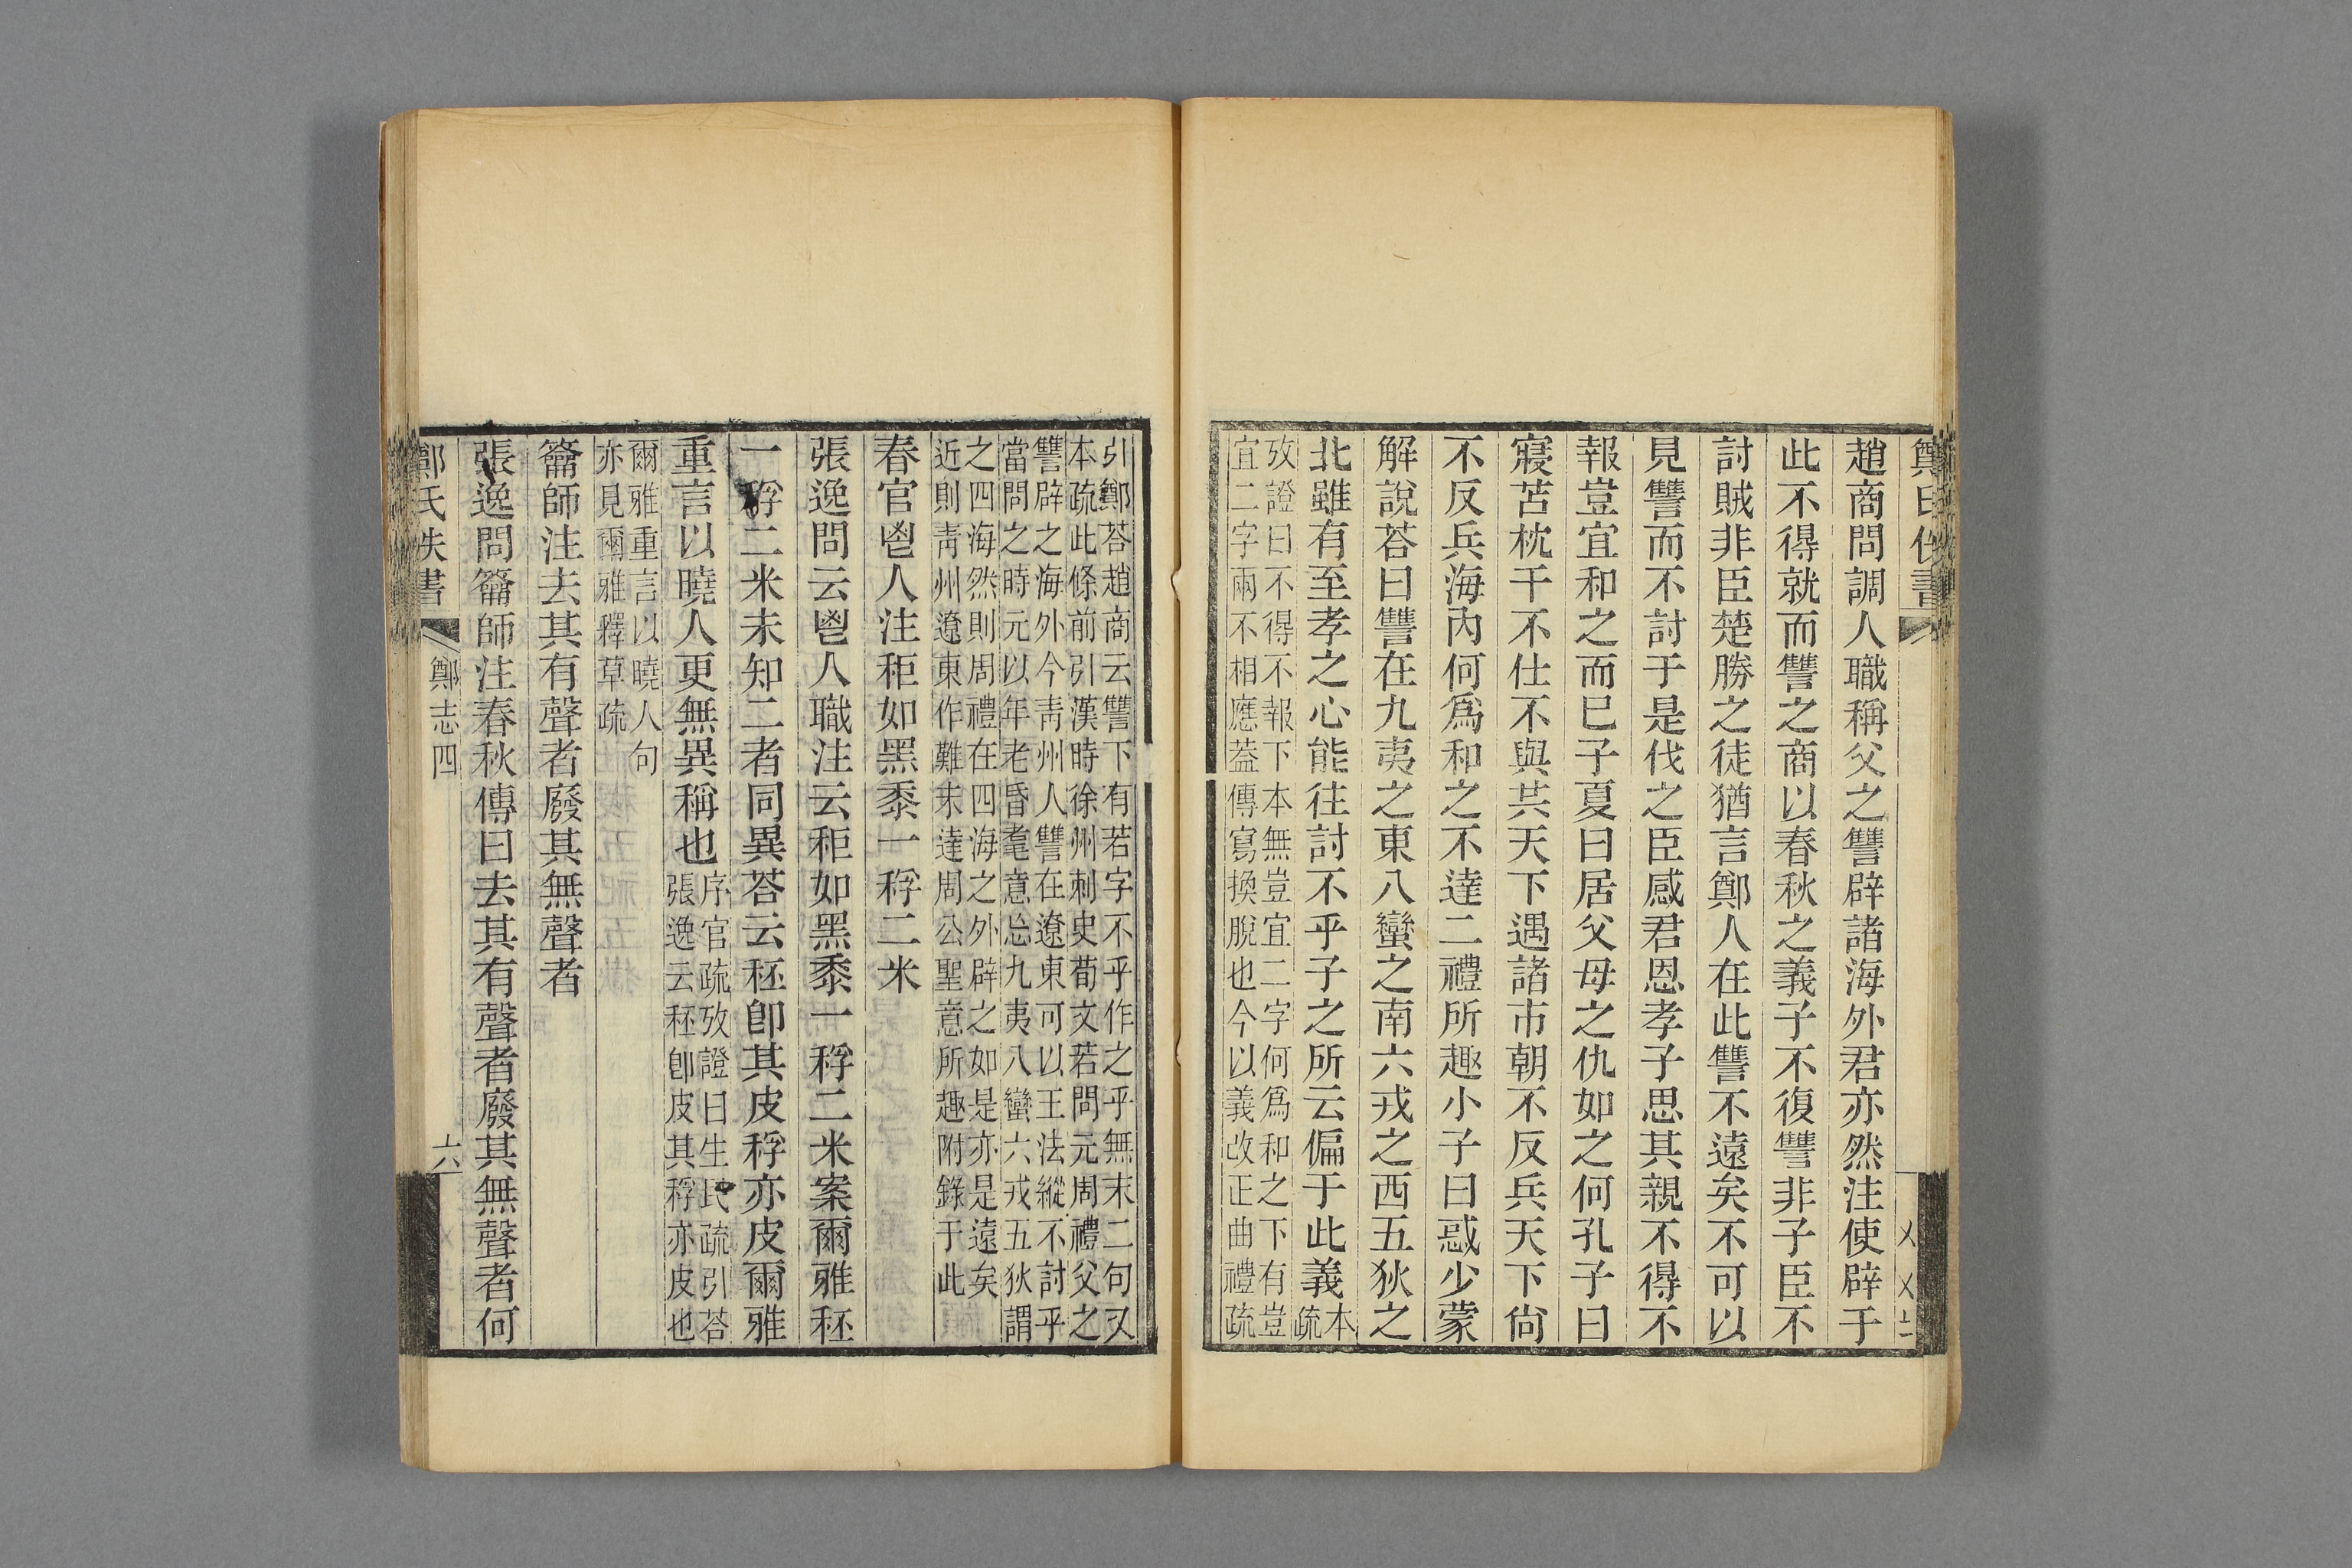 鄭氏佚書
趙商問調人職稱父之讐辟諸海外君亦然注使辟于
此不得就而讐之商以春秋之義子不復讐非子臣不
討賊非臣楚勝之徒猶言鄭人在此讐不遠矣不可以
見讐而不討于是伐之臣感君恩孝子思其親不得不
報豈宜和之而已子夏曰居父母之仇如之何孔子曰
寢苫枕干不仕不與共天下遇諸市朝不反兵天下尙
不反兵海內何爲和之不達二禮所趣小子曰惑少蒙
解說荅曰讐在九夷之東八蠻之南六戎之西五狄之
北雖有至孝之心能往討不乎子之所云偏于此義本
疏
攷證曰不得不報下本無豈宜二字何爲和之下有豈
宜二字兩不相應蓋傳寫換脫也今以義改正曲禮疏
引鄭荅趙商云讐下有若字不乎作之乎無末二句又
本疏此條前引漢時徐州刺史荀文若問元周禮父之
讐辟之海外今靑州人讐在遼東可以王法縱不討乎
當問之時元以年老昏耄意忩九夷八蠻六戎五狄謂
之四海然則周禮在四海之外辟之如是亦是遠矣
近則靑州遼東作難未達周公聖意所趣附錄于此
春官鬯人注秬如黑黍一稃二米
張逸問云鬯人職注云秬如黑黍一稃二米案爾雅秠
一稃二米未知二者同異荅云秠卽其皮稃亦皮爾雅
重言以曉人更無異稱也序官疏攷證曰生民疏引荅
張逸云秠卽皮其稃亦皮也
爾雅重言以曉人句
亦見爾雅釋草疏
籥師注去其有聲者廢其無聲者
張逸問籥師注春秋傳曰去其有聲者廢其無聲者何
鄭氏佚書
鄭志四
六